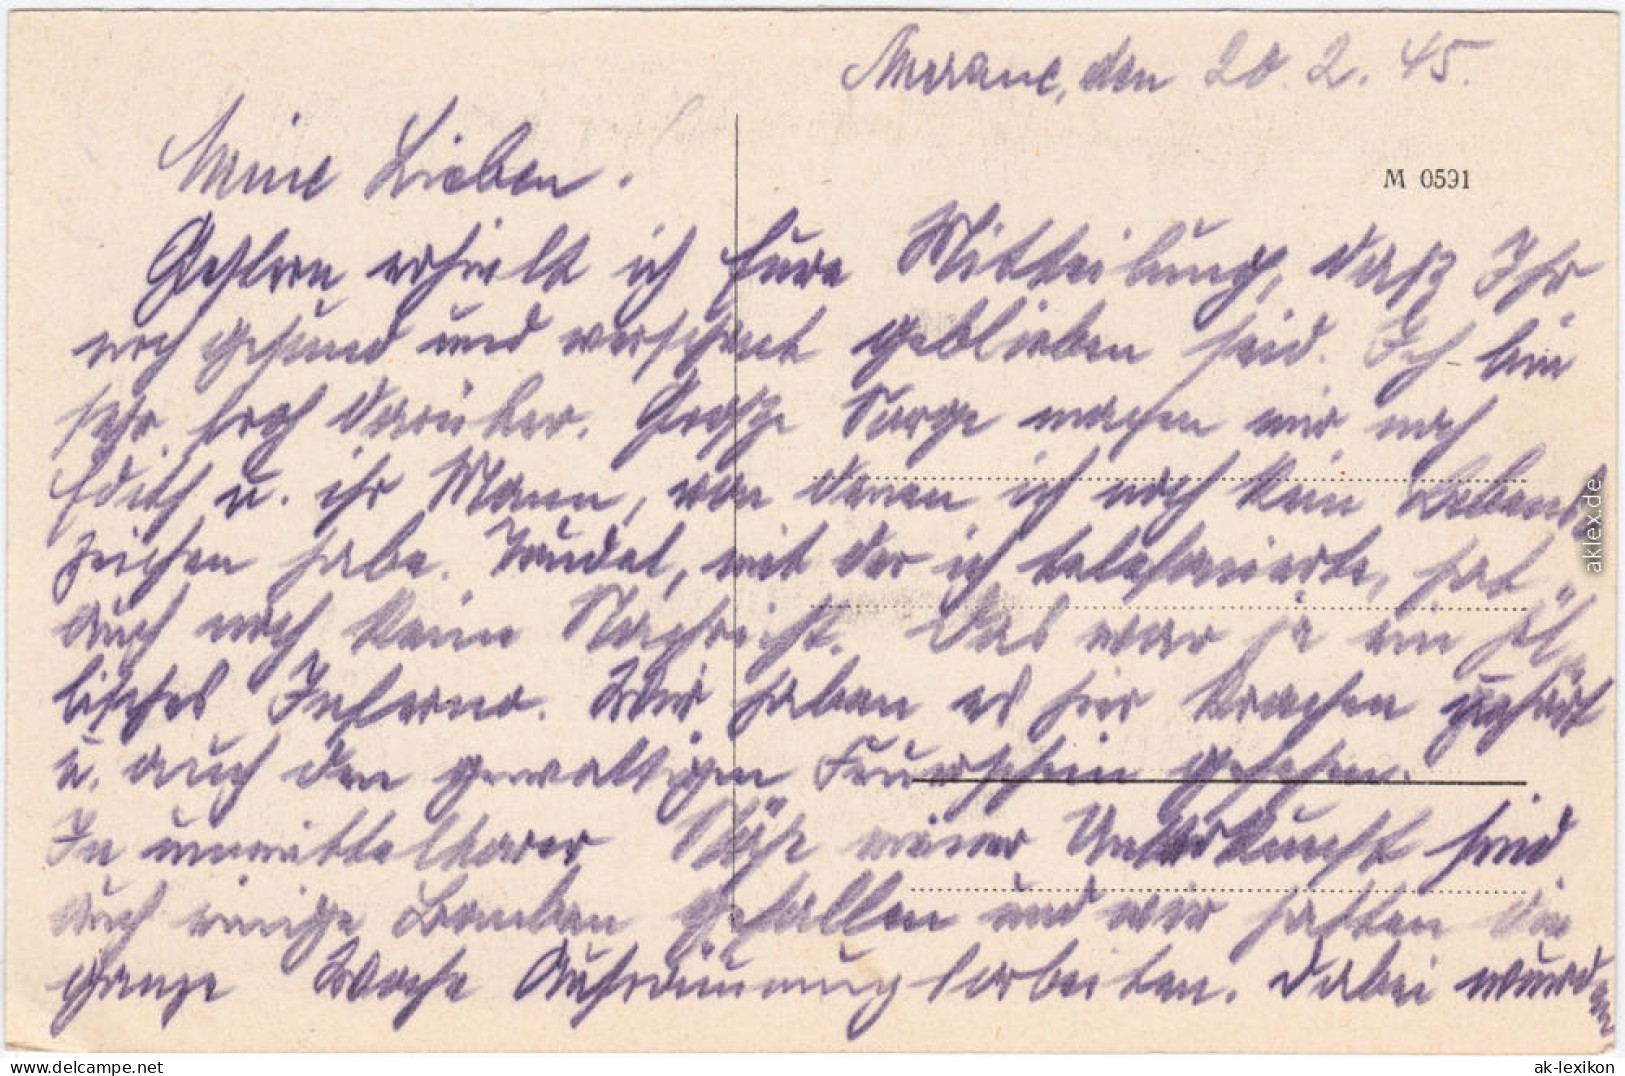 Meerane, den 20.2.45.
M 0591
Meine Lieben.
Gestern erhielt ich Eure Mitteilung, daß Ihr
noch gesund und verschont geblieben seid. Ich bin
sehr froh darüber. Große Sorge machen mir noch
Edith u. ihr Mann, von denen ich noch kein Lebens
zeichen habe. Trudel, mit der ich telefonierte, hat
auch noch keine Nachricht. Das war ja ein höl
lisches Inferno. Wir haben es hier krachen gehört
u. auch den gewaltigen Feuerschein gesehen.
In unmittelbarer Nähe meiner Unterkunft sind
auch einige Bomben gefallen und wir hatten die
ganze Woche Aufräumungsarbeiten. Dabei wurden
aklex.de
www.delcampe.net
ak-lexikon